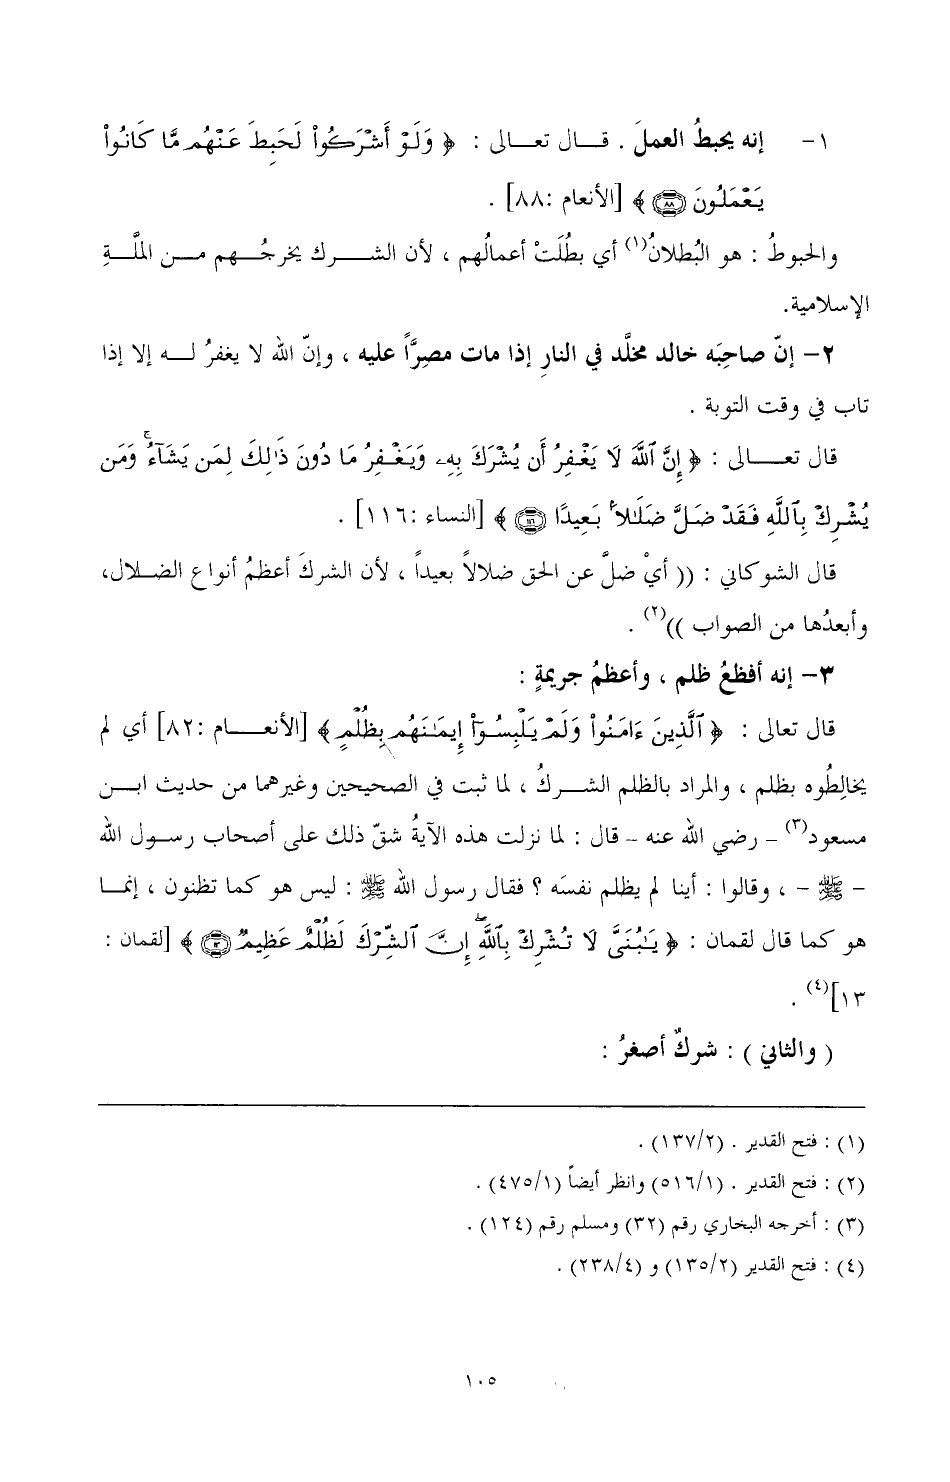 ١- إنه يحبطُ العملَ . قــال تعــالى : ﴿ وَلَوْ أَشْرَكُوا۟ لَحَبِطَ عَنْهُم مَّا كَانُوا۟
يَعْمَلُونَ ۝٨٨ ﴾ [الأنعام :٨٨] .
والحبوطُ : هو البُطلانُ(١) أي بطُلَتْ أعمالُهم ، لأن الشـــرك يخرجُــهم مــن الملَّــةِ
الإسلامية.
٢- إنّ صاحبَه خالد مخلَّد في النارِ إذا مات مصِرَّاً عليه ، وإنّ الله لا يغفرُ لــه إلا إذا
تاب في وقت التوبة .
قال تعـــالى : ﴿ إِنَّ ٱللَّهَ لَا يَغْفِرُ أَن يُشْرَكَ بِهِۦ وَيَغْفِرُ مَا دُونَ ذَٰلِكَ لِمَن يَشَآءُ ۚ وَمَن
يُشْرِكْ بِٱللَّهِ فَقَدْ ضَلَّ ضَلَٰلًۢا بَعِيدًا ۝١١٦ ﴾ [النساء :١١٦] .
قال الشوكاني : (( أيْ ضلَّ عن الحق ضلالاً بعيداً ، لأن الشركَ أعظمُ أنواع الضــلال،
وأبعدُها من الصواب ))(٢) .
٣- إنه أفظعُ ظلم ، وأعظمُ جريمةٍ :
قال تعالى : ﴿ ٱلَّذِينَ ءَامَنُوا۟ وَلَمْ يَلْبِسُوٓا۟ إِيمَٰنَهُم بِظُلْمٍ ﴾ [الأنعـــام :٨٢] أي لم
يخالِطُوه بظلم ، والمراد بالظلم الشــركُ ، لما ثبت في الصحيحين وغيرهما من حديث ابــن
مسعود(٣) – رضي الله عنه – قال : لما نزلت هذه الآيةُ شقّ ذلك على أصحاب رسـول الله
– ﷺ – ، وقالوا : أينا لم يظلم نفسَه ؟ فقال رسول الله ﷺ : ليس هو كما تظنون ، إنمــا
هو كما قال لقمان : ﴿ يَٰبُنَىَّ لَا تُشْرِكْ بِٱللَّهِ ۖ إِنَّ ٱلشِّرْكَ لَظُلْمٌ عَظِيمٌ ۝١٣ ﴾ [لقمان :
١٣](٤) .
( والثاني ) : شركٌ أصغرُ :
(١) : فتح القدير . (١٣٧/٢) .
(٢) : فتح القدير . (٥١٦/١) وانظر أيضاً (٤٧٥/١) .
(٣) : أخرجه البخاري رقم (٣٢) ومسلم رقم (١٢٤) .
(٤) : فتح القدير (١٣٥/٢) و (٢٣٨/٤) .
١٠٥